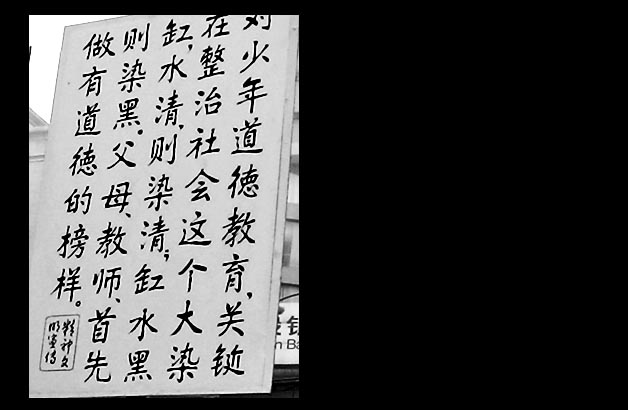 对少年道德教育,关铤
在整治社会这个大染
缸,水清,则染清;缸水黑
则染黑。父母、教师、首先
做有道德的榜样。
精神文
明宣传